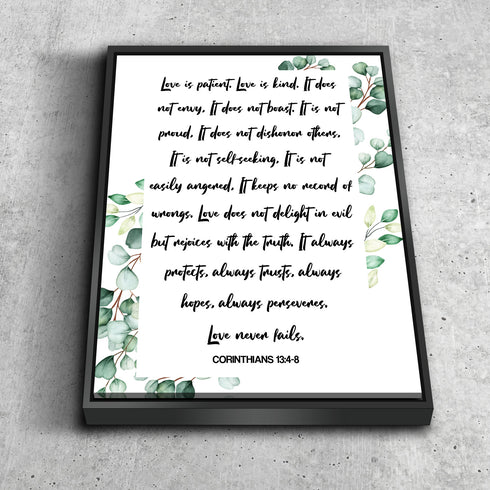 Love is patient. Love is kind. It does
not envy. It does not boast. It is not
proud. It does not dishonor others.
It is not self-seeking. It is not
easily angered. It keeps no record of
wrongs. Love does not delight in evil
but rejoices with the truth. It always
protects, always trusts, always
hopes, always perseveres.
Love never fails.
CORINTHIANS 13:4-8